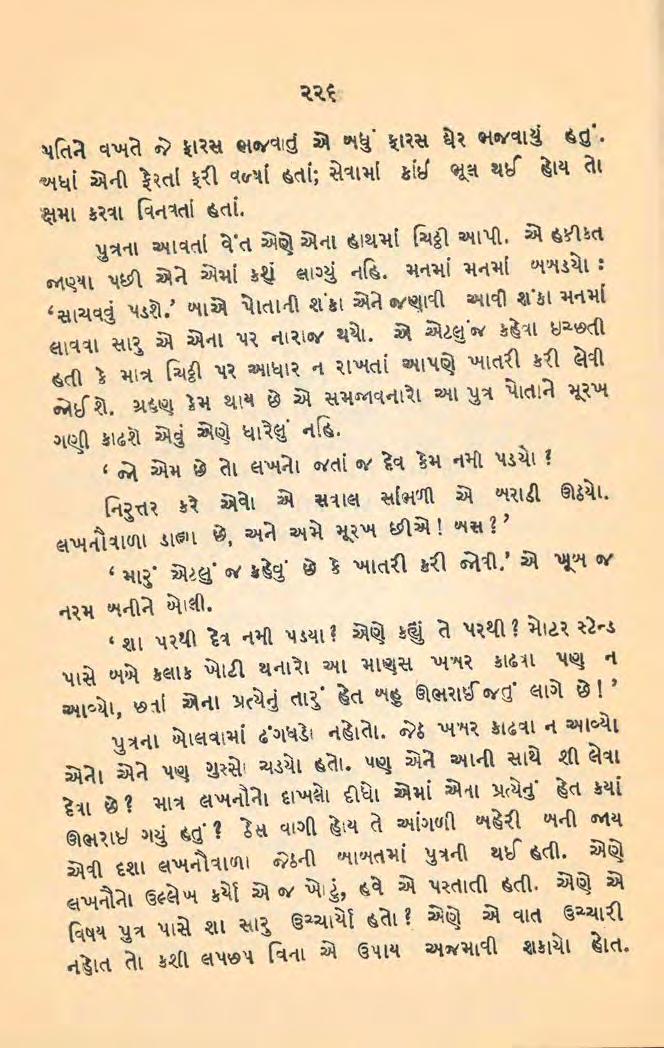 ૨૨૬
યતિને વખતે જે ફારસ ભજવાતું એ બધું ફારસ ઘેર ભજવાયું હતું.
બધાં એની ફેરતાં ફરી વળ્યાં હતાં; સેવામાં કાંઈ ભૂલ થઈ હોય તો
ક્ષમા કરવા વિનવતાં હતાં.
પુત્રના આવતાં વેંત એણે એના હાથમાં ચિઠ્ઠી આપી. એ હકીકત
જાણ્યા પછી એને એમાં કશું લાગ્યું નહિ. મનમાં મનમાં બબડ્યો :
‘સાચવવું પડશે.’ બાએ પોતાની શંકા એને જણાવી આવી શંકા મનમાં
લાવવા સારુ એ એના પર નારાજ થયો. એ એટલું જ કહેવા ઇચ્છતી
હતી કે માત્ર ચિઠ્ઠી પર આધાર ન રાખતાં આપણે ખાતરી કરી લેવી
જોઈશે. ગ્રહણ કેમ થાય છે એ સમજાવનારો આ પુત્ર પોતાને મૂરખ
ગણી કાઢશે એવું એણે ધારેલું નહિ.
‘જો એમ છે તો લખનો જતાં જ દેવ કેમ નમી પડ્યો ?
નિરુત્તર કરે એવો એ સવાલ સાંભળી એ બરાડી ઊઠ્યો.
લખનૌવાળા ડાહ્યા છે, અને અમે મૂરખ છીએ! બસ?’
‘મારું એટલું જ કહેવું છે કે ખાતરી કરી જોવી.’ એ ખૂબ જ
નરમ બનીને બોલી.
‘શા પરથી દેવ નમી પડયા? એણે કહ્યું તે પરથી? મોટર સ્ટેન્ડ
પાસે બબે કલાક ખોટી થનારો આ માણસ ખબર કાઢવા પણ ન
આવ્યો, છતાં એના પ્રત્યેનું તારું હેત બહુ ઊભરાઈ જતું લાગે છે!’
પુત્રના બોલવામાં ઢંગધડો નહોતો. જેઠ ખબર કાઢવા ન આવ્યો
એનો એને પણ ગુસ્સો ચડયો હતો. પણ એને આની સાથે શી લેવા
દેવા છે? માત્ર લખનૌનો દાખલો દીધો એમાં એના પ્રત્યેનું હેત કયાં
ઊભરાઇ ગયું હતું? ઠેસ વાગી હોય તે આંગળી બહેરી બની જાય
એવી દશા લખનૌવાળા જેઠની બાબતમાં પુત્રની થઈ હતી. એણે
લખનૌનો ઉલ્લેખ કર્યો એ જ ખોટું, હવે એ પસ્તાતી હતી. એણે એ
વિષય પુત્ર પાસે શા સારુ ઉચ્ચાર્યો હતો? એણે એ વાત ઉચ્ચારી
નહોત તો કશી લપછપ વિના એ ઉપાય અજમાવી શકાયો હોત.